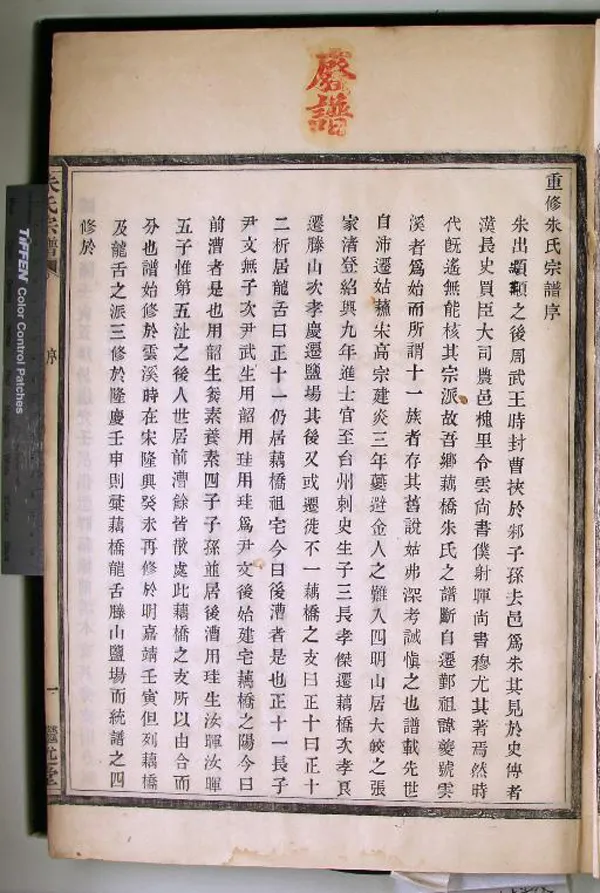 譜
重修朱氏宗譜序
朱出顓顼之後周武王時封曹挾於邾子孫去邑爲朱其見於史傳者
漢長史買臣大司農邑槐里令雲尙書僕射暉尙書穆尤其著焉然時
代旣遙無能核其宗派故吾鄉藕橋朱氏之譜斷自遷鄞祖諱夔號雲
溪者爲始而所謂十一族者存其舊說姑弗深考誠愼之也譜載先世
自沛遷姑蘇宋高宗建炎三年夔避金人之難入四明山居大皎之張
家淸登紹興九年進士官至台州刺史生子三長孝傑遷藕橋次孝良
遷滕山次孝慶遷鹽場其後又或遷徙不一藕橋之支曰正十曰正十
二析居龍舌曰正十一仍居藕橋祖宅今曰後漕者是也正十一長子
尹文無子次尹武生用韶用珪用珪爲尹文後始建宅藕橋之陽今曰
前漕者是也用韶生養素養素四子子孫並居後漕用珪生汝暉汝暉
五子惟第五沚之後人世居前漕餘皆散處此藕橋之支所以由合而
分也譜始修於雲溪時在宋隆興癸未再修於明嘉靖壬寅但列藕橋
及龍舌之派三修於隆慶壬申則彙藕橋龍舌滕山鹽場而統譜之四
修於
朱氏宗譜
序
一
繼述堂
TIFFEN Color Control Patches